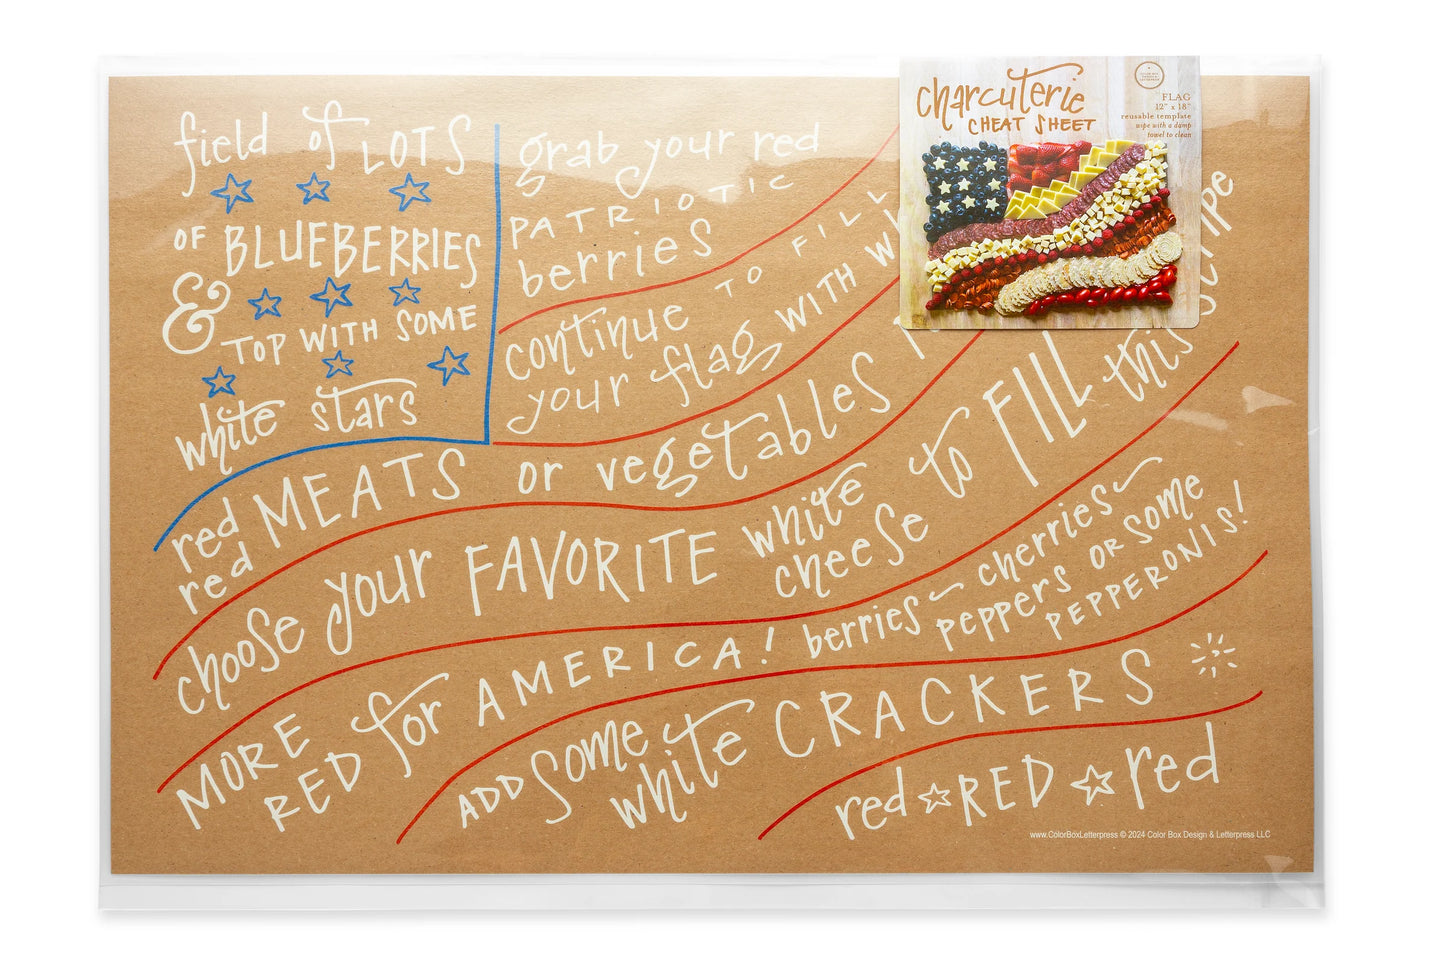 field of LOTS
OF BLUEBERRIES
& TOP WITH SOME
white stars
grab your red
PATRIOTIC
berries
continue TO FILL
your flag WITH
red MEATS or vegetables
red
choose your FAVORITE white
cheese to FILL this stripe
MORE
RED for AMERICA! berries~ cherries~
peppers OR SOME
PEPPERONIS!
ADD SOME
white CRACKERS
red ☆ RED ☆ red
www.ColorBoxLetterpress © 2024 Color Box Design & Letterpress LLC
charcuterie
CHEAT SHEET
COLOR BOX
DESIGN &
LETTERPRESS
FLAG
12" x 18"
reusable template
wipe with a damp
towel to clean